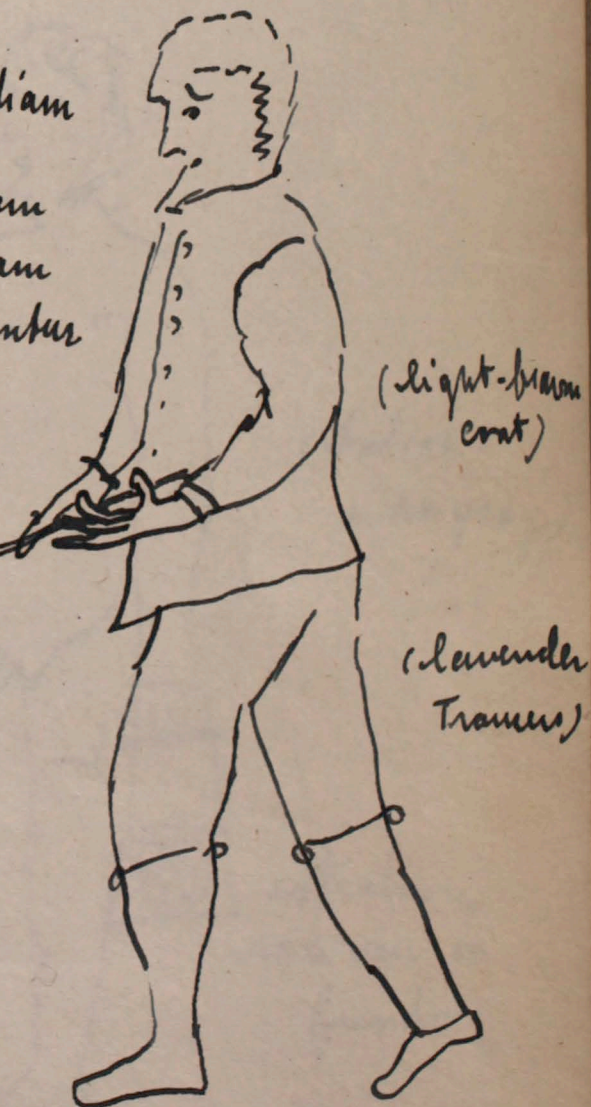 liam
em
am
ntur
(light-brown
coat)
(lavender
Trousers)